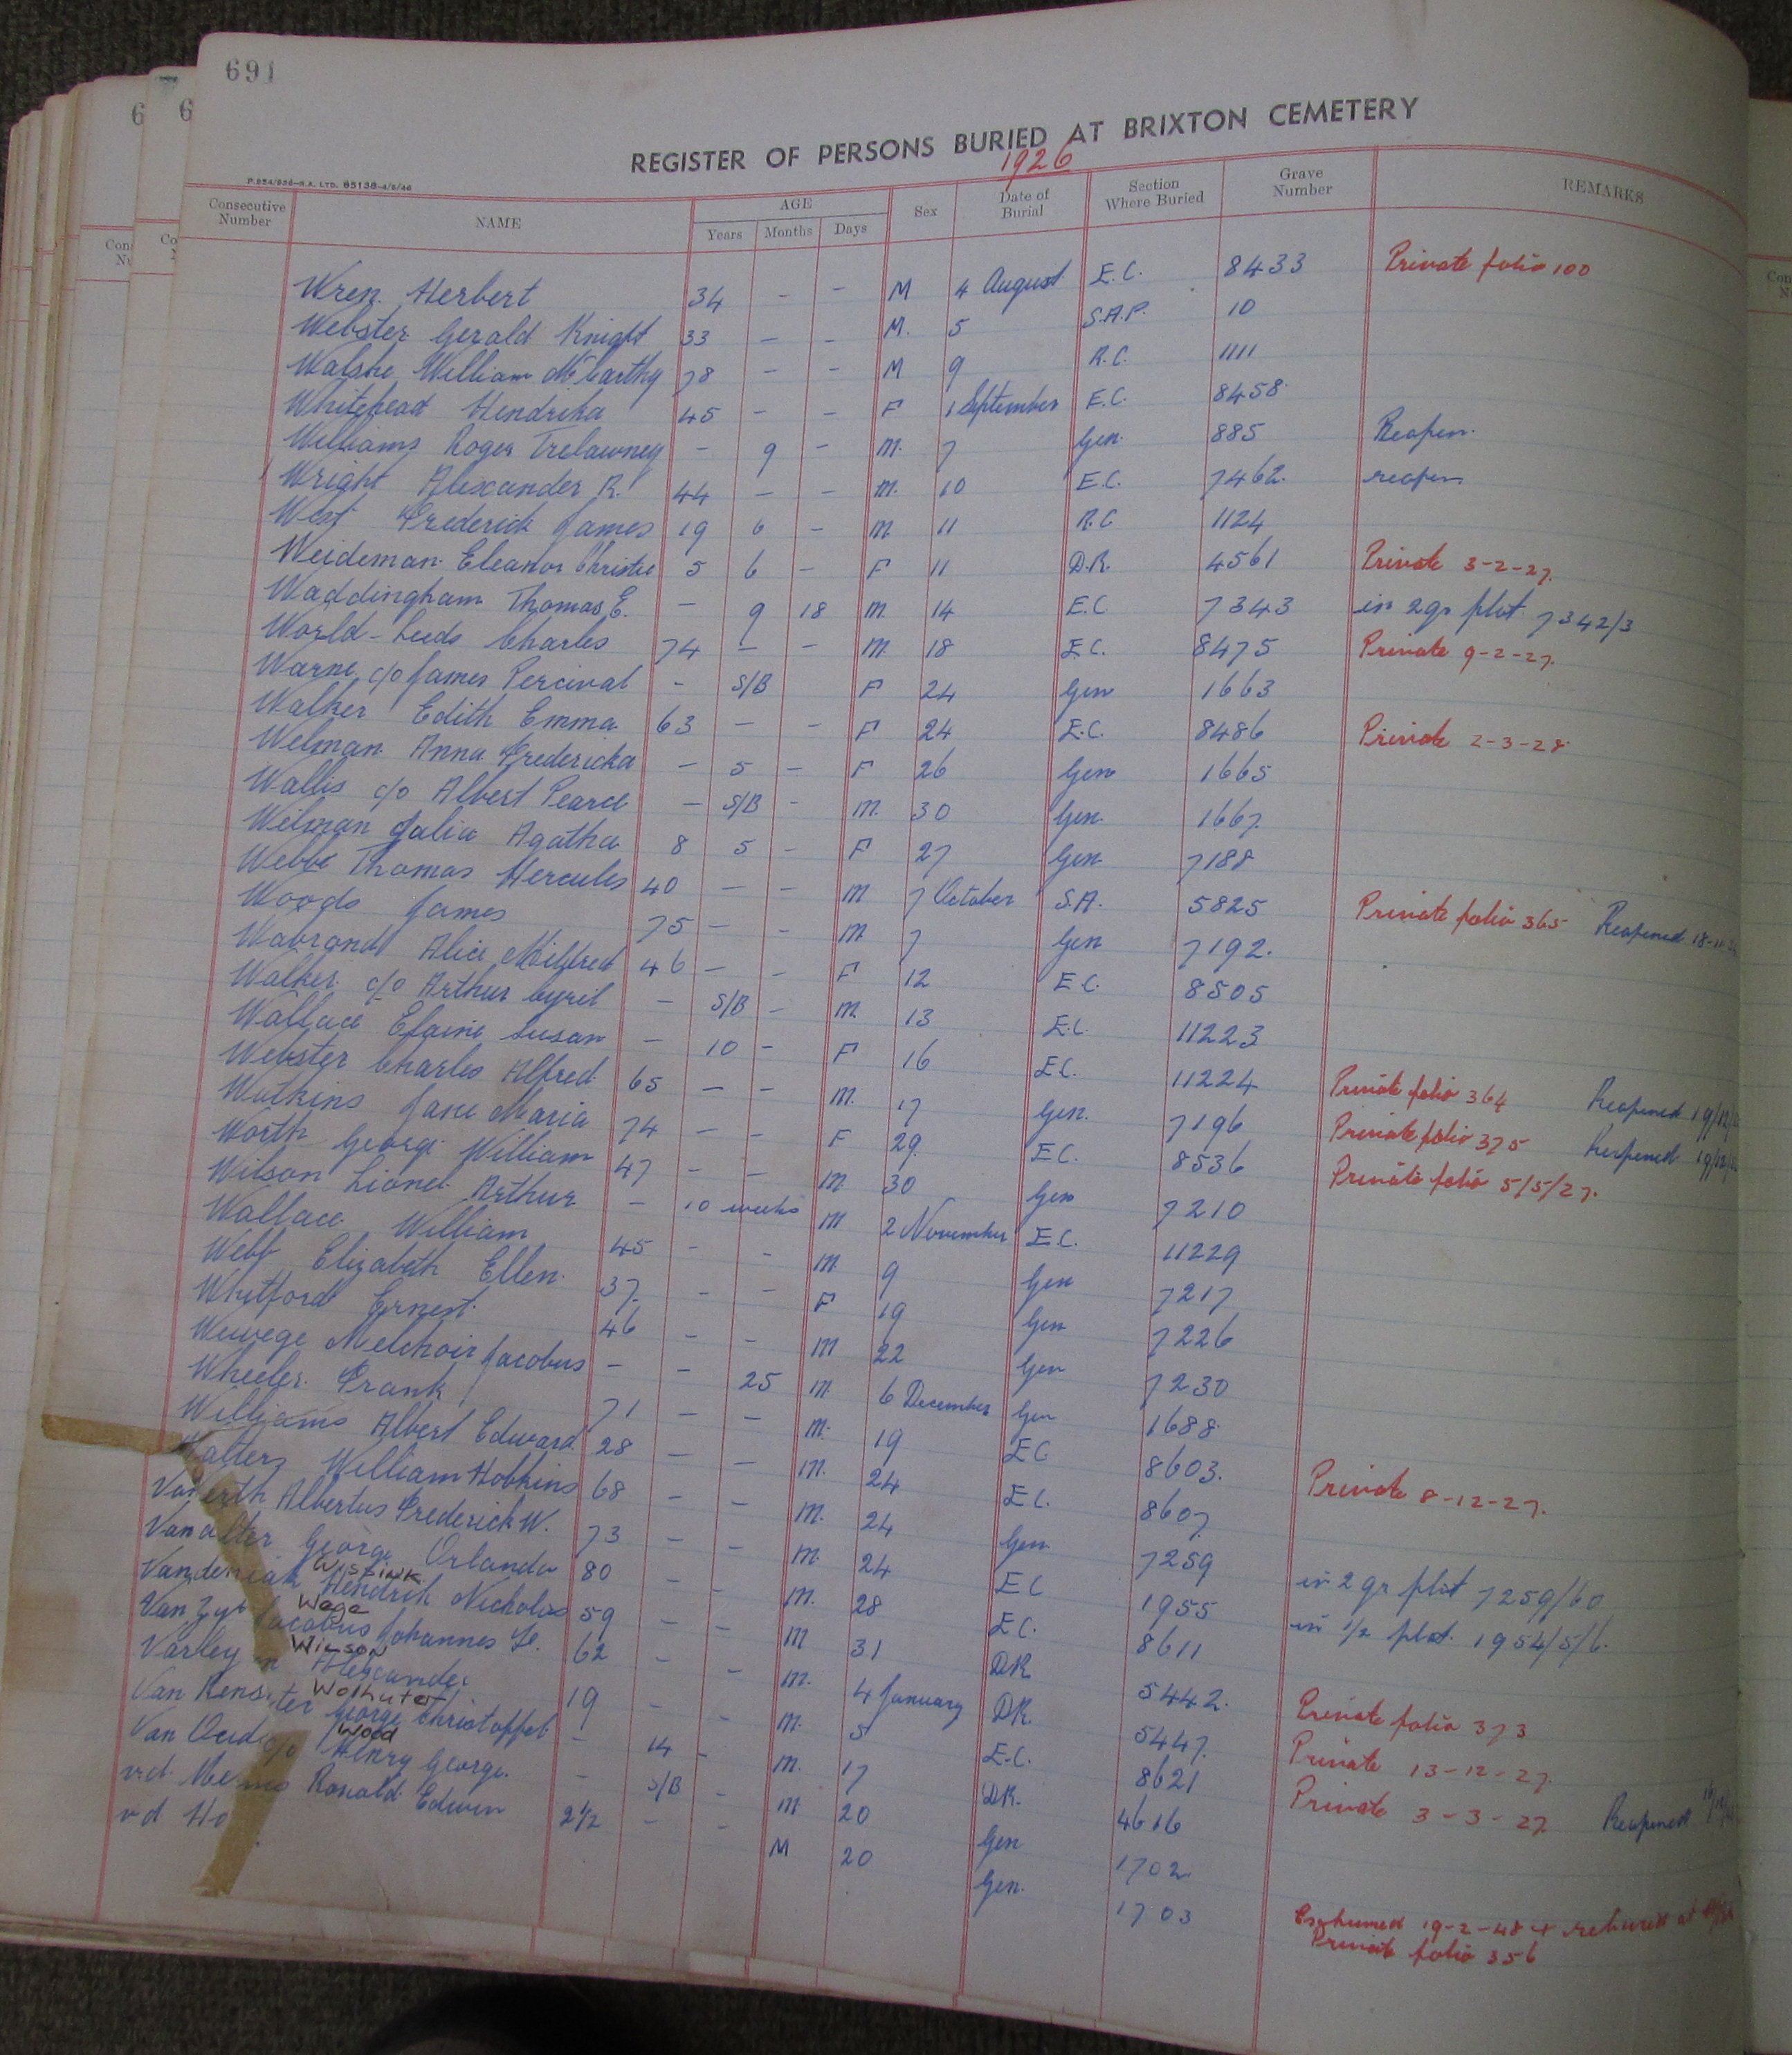 691
REGISTER OF PERSONS BURIED AT BRIXTON CEMETERY
1926
Consecutive Number NAME AGE Years Months Days Sex Date of Burial Section Where Buried Grave Number REMARKS
Wren Herbert 34 - - M 4 August E.C. 8433 Private folio 100
Webster Gerald Knight 33 - - M. 5 S.A.P. 10
Walshe William McCarthy 78 - - M 9 R.C. 1111
Whitehead Hendrika 45 - - F 1 September E.C. 8458
Williams Roger Trelawney - 9 - M. 7 Gen. 885 Reopen.
Wright Alexander R. 44 - - M. 10 E.C. 7462. reopen
West Frederick James 19 6 - M 11 R.C 1124
Weideman Eleanor Christie 5 6 - F 11 D.R. 4561 Private 3-2-27.
Waddingham Thomas E. - 9 18 M. 14 E.C 7343 in 2 gr plot 7342/3
World-Leeds Charles 74 - - M 18 E.C. 8475 Private 9-2-27.
Warne c/o James Percival - S/B F 24 Gen 1663
Walker Edith Emma 63 - - F 24 E.C. 8486 Private 2-3-28
Welman Anna Fredericka - 5 - F 26 Gen 1665
Wallis c/o Albert Pearce - S/B - M. 30 Gen. 1667.
Welman Julia Agatha 8 5 - F 27 Gen 7188
Webbe Thomas Hercules 40 - - M 7 October S.A. 5825 Private folio 365 Reopened
Woods James 75 - - M. 7 Gen 7192.
Alice Mildred 46 - - F 12 E.C. 8505
Walker c/o Arthur Cyril - S/B - M. 13 E.C. 11223
Wallace Elaine Susan - 10 - F 16 E.C. 11224 Private folio 364 Reopened
Webster Charles Alfred 65 - - M. 17 Gen. 7196 Private folio 375 Reopened
Watkins Jane Maria 74 - - F 29. E.C. 8536 Private folio 5/5/27.
Worth George William 47 - - M 30 Gen 7210
Wilson Lionel Arthur - 10 weeks M 2 November E.C. 11229
Wallace William 45 - - M. 9 Gen 7217
Webb Elizabeth Ellen 37 - - F 19 Gen 7226
Whitford Ernest 46 - - M 22 Gen 7230
Wewege Melchoir Jacobus - - 25 M. 6 December Gen 1688
Wheeler Frank 71 - - M. 19 EC 8603. Private 8-12-27.
Williams Albert Edward 28 - - M. 24 E.C. 8607
Walters William Hobkins 68 - - M. 24 Gen 7259 in 2 gr plot 7259/60
Van erth Albertus Frederick W. 73 - - M. 24 EC 1955 in 1/2 plot 1954/5/6.
Van alter George Orlando 80 - - M. 28 E.C. 8611
Wistink Hendrik Nicholas 59 - - M 31 DR 5442. Private folio 373
Van Zyl Wege Jacobus Johannes 62 - - M. 4 January DR. 5447. Private 13-12-27.
Varley Wilson Alexander 19 - - M. 5 E.C. 8621 Private 3-3-27 Reopened
Van Rens Wolhuter George Christoffel - 14 - M. 17 DR. 4616
Van Oud Wood c/o Henry George. - S/B - M 20 Gen 1702.
v.d. Me Ronald Edwin 2½ - - M 20 Gen. 1703 Exhumed 19-2-48 + reburied at
v d Ho Private folio 356